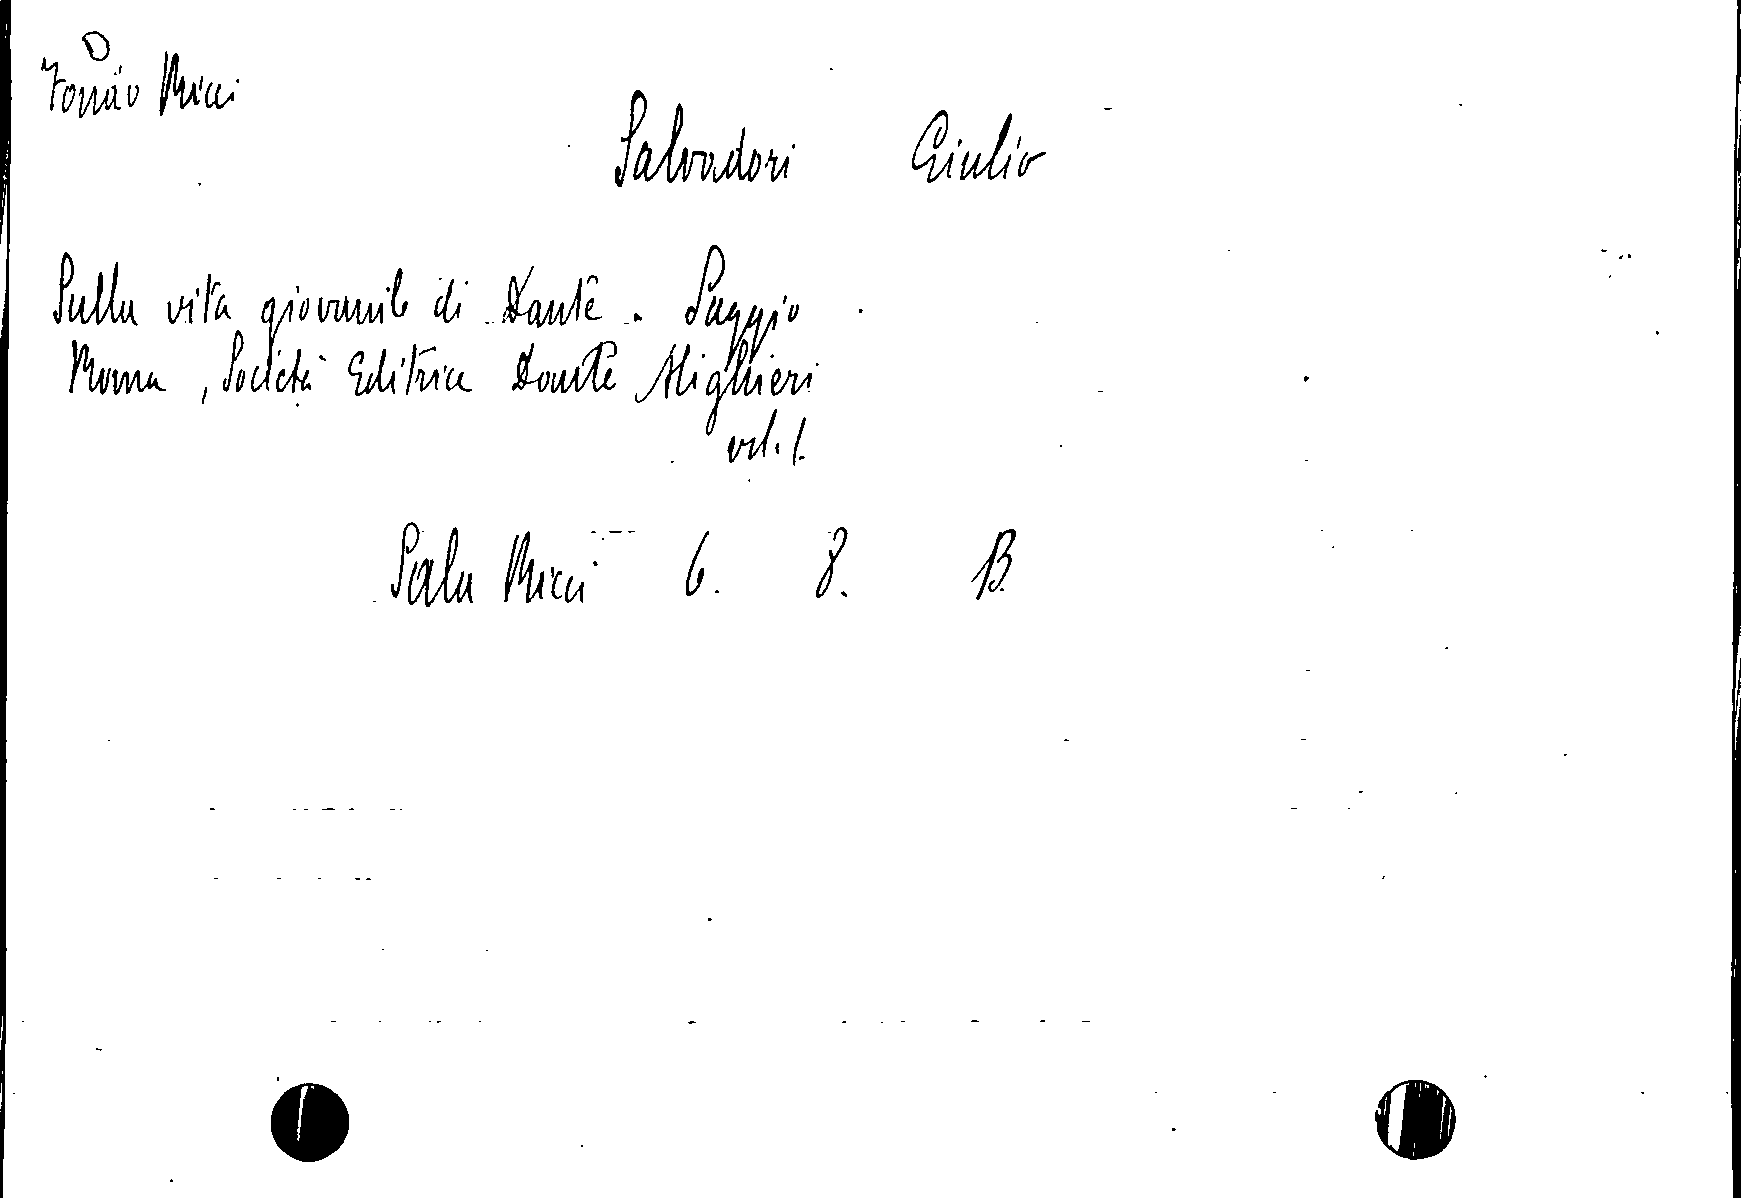 D
Fondo Ricci
Salvadori Giulio
Sulla vita giovanile di Dante. Saggio
Roma, Società Editrice Dante Alighieri
vol. 1.
Sala Ricci 6. 8. B.